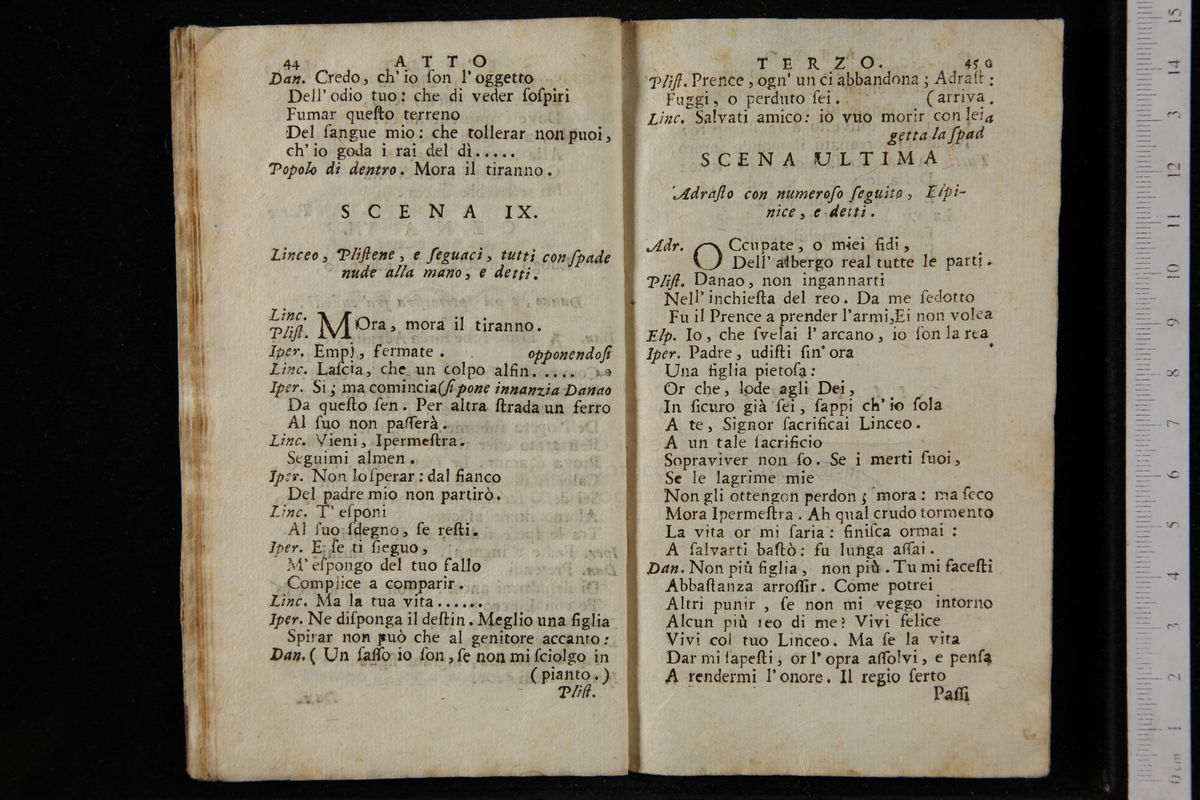 44 ATTO
Dan. Credo, ch'io ſon l'oggetto
Dell'odio tuo: che di veder ſoſpiri
Fumar queſto terreno
Del ſangue mio: che tollerar non puoi,
ch'io goda i rai del dì.....
Popolo di dentro. Mora il tiranno.
SCENA IX.
Linceo, Pliſtene, e ſeguaci, tutti con ſpade
nude alla mano, e detti.
Linc.
Pliſt. MOra, mora il tiranno.
Iper. Empj, fermate. opponendoſi
Linc. Laſcia, che un colpo alfin.....
Iper. Si; ma comincia (ſi pone innanzi a Danao
Da queſto ſen. Per altra ſtrada un ferro
Al ſuo non paſſerà.
Linc. Vieni, Ipermeſtra.
Seguimi almen.
Iper. Non lo ſperar: dal fianco
Del padre mio non partirò.
Linc. T'eſponi
Al ſuo ſdegno, ſe reſti.
Iper. E ſe ti ſieguo,
M'eſpongo del tuo fallo
Complice a comparir.
Linc. Ma la tua vita......
Iper. Ne diſponga il deſtin. Meglio una figlia
Spirar non può che al genitore accanto:
Dan. (Un ſaſſo io ſon, ſe non mi ſciolgo in
(pianto.)
Pliſt.
TERZO. 45 G
Pliſt. Prence, ogn'un ci abbandona; Adraſt:
Fuggi, o perduto ſei. (arriva.
Linc. Salvati amico: io vuo morir con lei a
getta la ſpad
SCENA ULTIMA
Adraſto con numeroſo ſeguito, Elpi-
nice, e detti.
Adr. OCcupate, o miei fidi,
Dell'albergo real tutte le parti.
Pliſt. Danao, non ingannarti
Nell'inchieſta del reo. Da me ſedotto
Fu il Prence a prender l'armi, Ei non volea
Elp. Io, che ſvelai l'arcano, io ſon la rea.
Iper. Padre, udiſti ſin'ora
Una figlia pietoſa:
Or che, lode agli Dei,
In ſicuro già ſei, ſappi ch'io ſola
A te, Signor ſacrificai Linceo.
A un tale ſacrificio
Sopraviver non ſo. Se i merti ſuoi,
Se le lagrime mie
Non gli ottengon perdon; mora: ma ſeco
Mora Ipermeſtra. Ah qual crudo tormento
La vita or mi ſaria: finiſca ormai:
A ſalvarti baſtò: fu lunga aſſai.
Dan. Non più figlia, non più. Tu mi faceſti
Abbaſtanza arroſſir. Come potrei
Altri punir, ſe non mi veggo intorno
Alcun più reo di me? Vivi felice
Vivi col tuo Linceo. Ma ſe la vita
Dar mi ſapeſti, or l'opra aſſolvi, e penſa
A rendermi l'onore. Il regio ſerto
Paſſi
0 cm 1 2 3 4 5 6 7 8 9 10 11 12 13 14 15